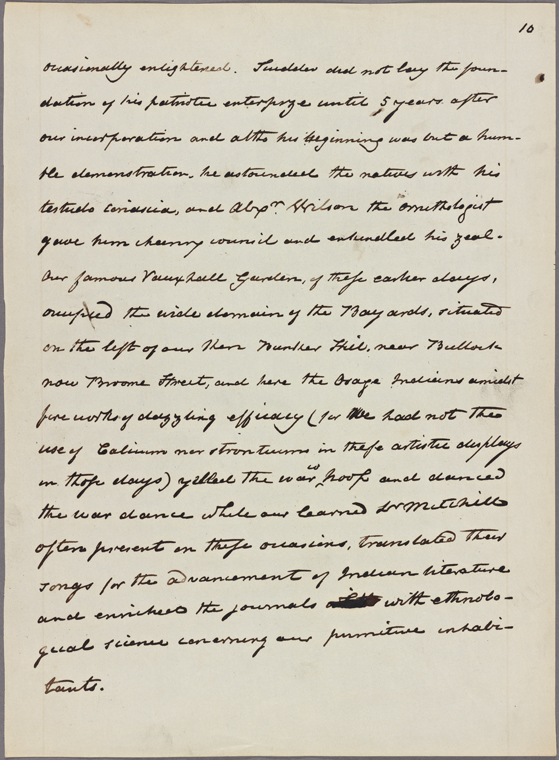 10
occasionally enlightened. Scudder did not lay the foun-
dation of his patriotic enterprze until 5 years after
our incorporation and altho his beginning was but a hum-
ble demonstration, he astounded the natives with his
testudo coriacia, and Alexr. Wilson the ornithologist
gave him cheering council and enkindled his zeal.
Our famous Vauxhall Garden, of these earlier days,
occupied the wide domain of the Bayards, situated
on the left of our then Bunker Hill, near Bullock
now Broome Street, and here the Osage Indians amidst
fire works of dazzling efficacy (for We had not the
use of Calcium nor strontiums in these artistic displays
in those days) yelled the war whoop and danced
the war dance while our learned Dr Mitchill
often present on these occasions, translated their
songs for the advancement of Indian literature
and enriched the journals with ethnolo-
gical science concerning our primitive inhabi-
tants.